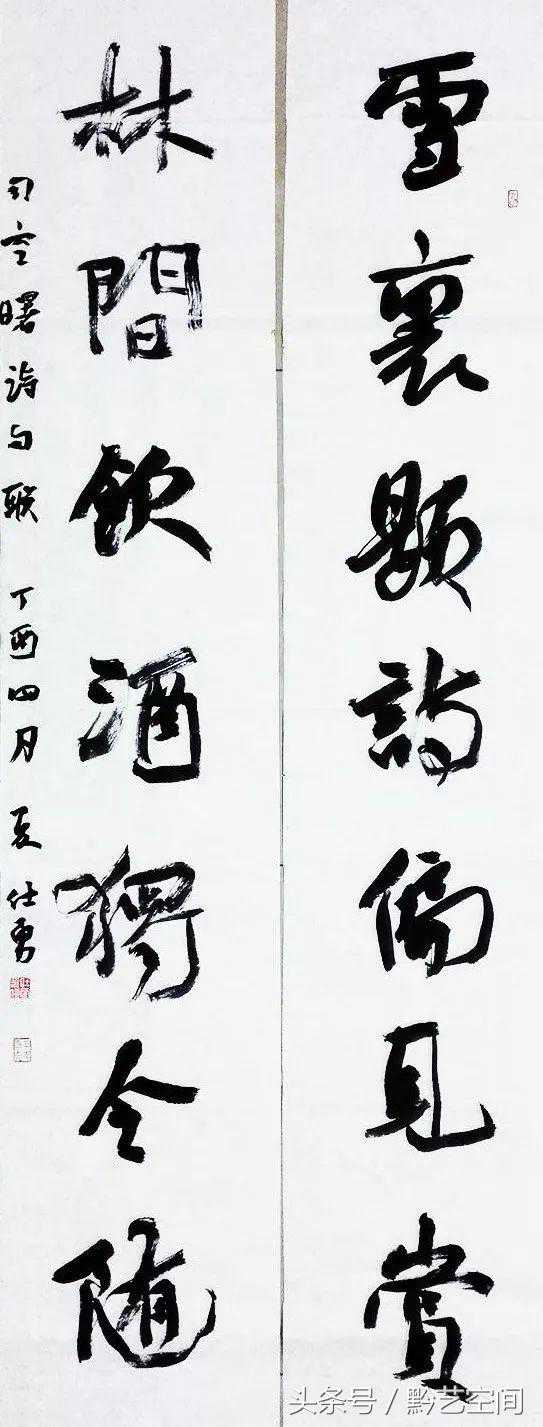 雪裏題詩偏見賞
林間飲酒獨令隨
司空曙詩句聯 丁酉四月 夏仕勇
头条号／黔艺空间